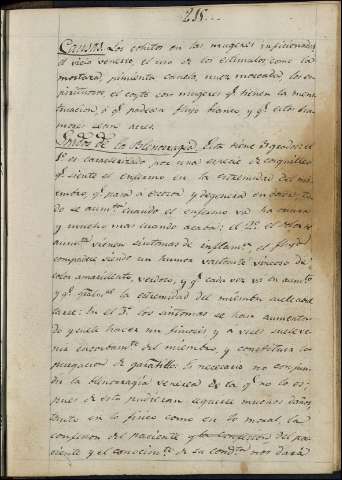 215..
Causas. Los coitos en las mugeres inficionadas
del vicio venereo, el uso de los estimulos como la
mostaza, pimienta canela, nuez moscada, los es-
pirituosos el coito con mugeres q.e tienen la mens-
truacion, ó q.e padecen flujo blanco y q.e estos hu-
mores sean acres.
Grados de la Blenorragia. Esta tiene 3 grados: el
1.o es caracterizado por una especie de cosquilleo
q.e siente el enfermo en la estremidad del mi-
embro, q.e pasa á escozor y degenera en dolor, to-
do se aum.ta cuando el enfermo va ha orinar
y mucho mas cuando acaba: el 2.o el dolor se
aum.ta vienen sintomas de inflam.n, el flujo
comparece siendo un humor bastante viscoso de
color amarillento, verdoso, y q.e cada vez va en aum.to
y q.e la estremidad del miembro
En el 3.o los sintomas se han aumenta-
do y suele hacer un fimosis y á veces suele ve-
nir encorbam.to del miembro, y constituye la
purgacion de garabatillo. Es necesario no confun-
dir la blenorragia venerea de la q.e no lo es;
pues de esto pudieran seguirse muchos daños,
tanto en lo fisico como en lo moral, la
confesion del paciente y la confesion del pa-
ciente y el conocim.to de su cond.ta nos dará